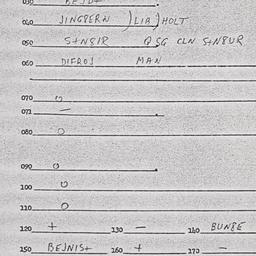 040 JINGBERN ) LIB ) HOLT
050 S+NGIR QSG CLN S+N8UR
060 DIFROJ MAN
070 0
071 —
080 0
090 0
100 0
110 0
120 + 130 — 140 BUN8E
150 BEJNIS+ 160 + 170 —